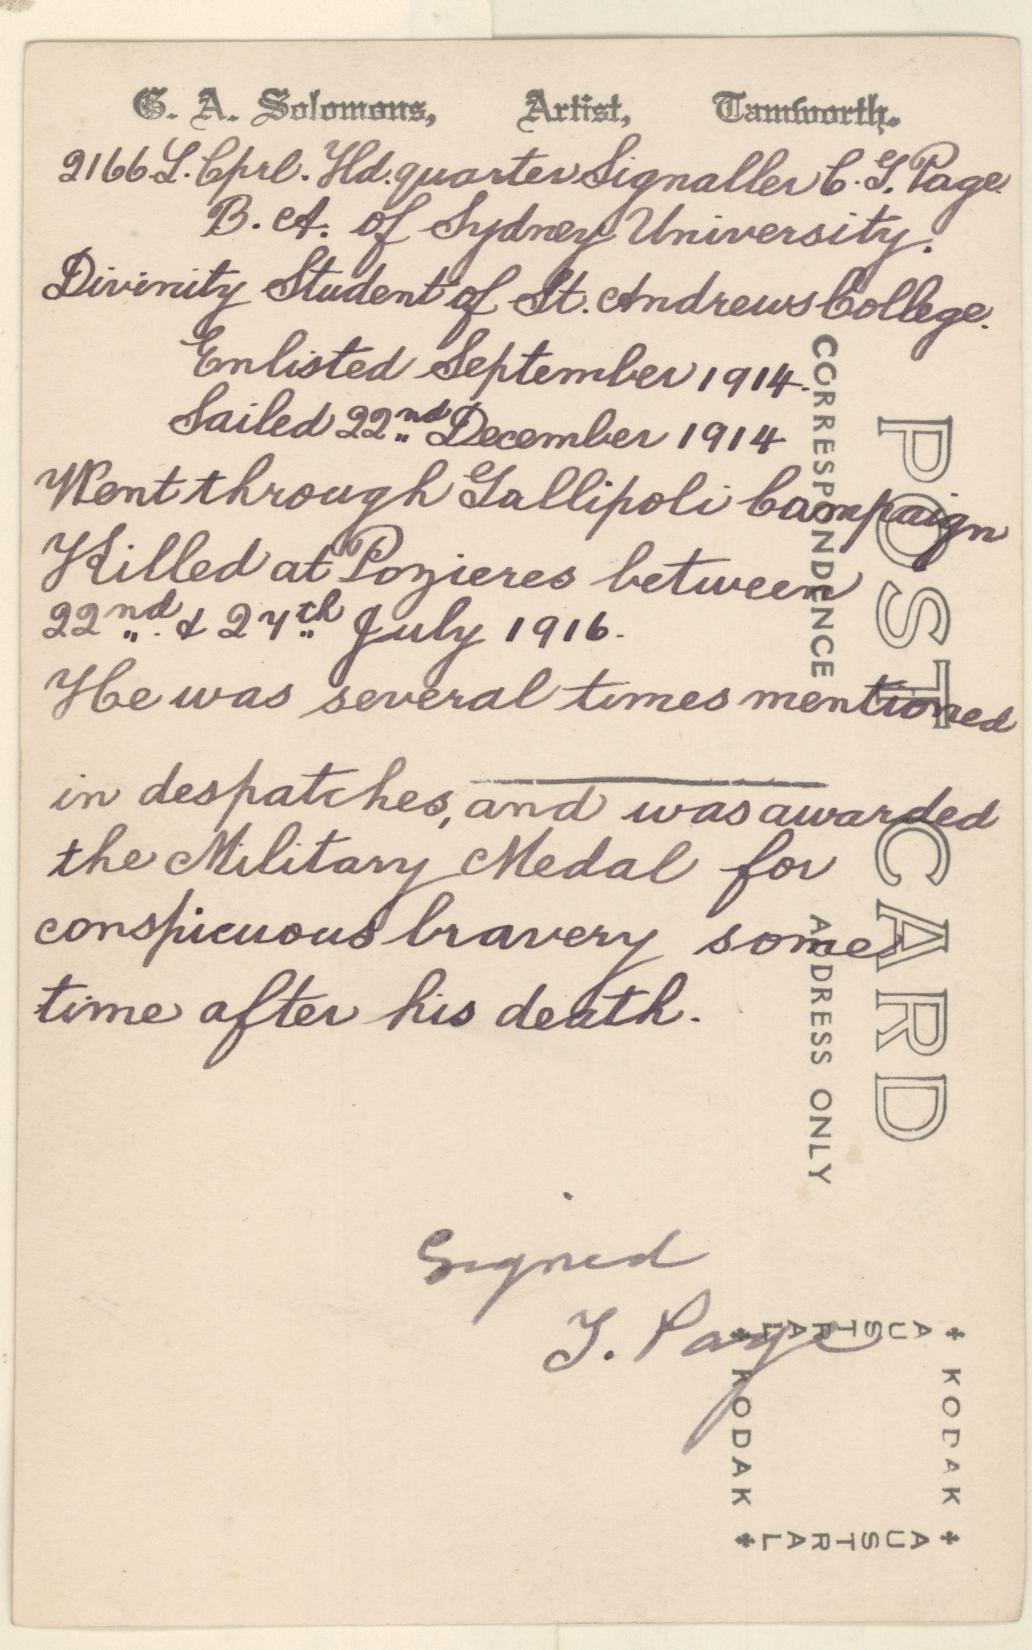 G. A. Solomons, Artist, Tamworth.
2166 L. Cprl. Hd. quarter Signaller C. G. Page
B. A. of Sydney University.
Divinity Student of St. Andrews College.
Enlisted September 1914.
Sailed 22nd December 1914
Went through Gallipoli Campaign
Killed at Pozieres between
22nd & 27th July 1916.
He was several times mentioned
in despatches, and was awarded
the Military Medal for
conspicuous bravery some
time after his death.
Signed
J. Page
POST CARD
CORRESPONDENCE
ADDRESS ONLY
AUSTRAL
KODAK
AUSTRAL
KODAK